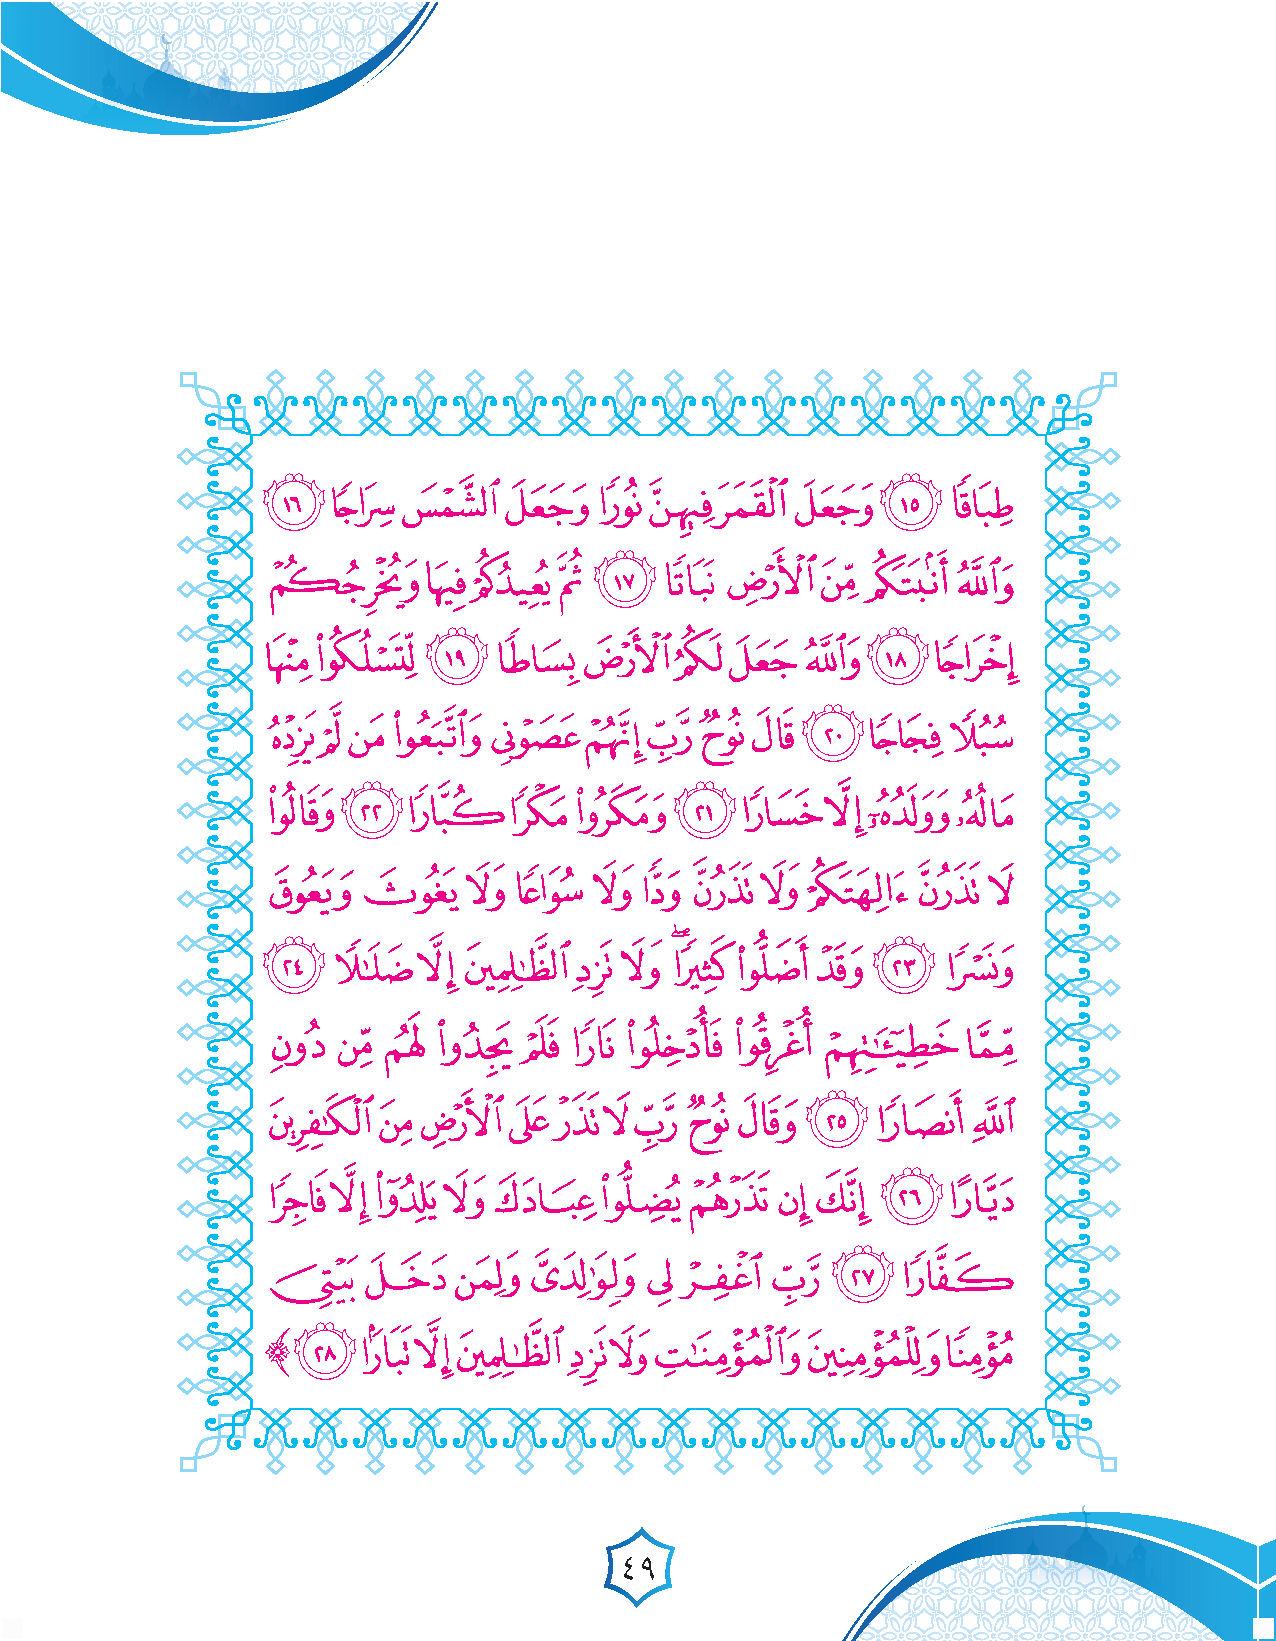 طِبَاقٗا ١٥ وَجَعَلَ ٱلۡقَمَرَ فِيهِنَّ نُورٗا وَجَعَلَ ٱلشَّمۡسَ سِرَاجٗا ١٦
وَٱللَّهُ أَنۢبَتَكُم مِّنَ ٱلۡأَرۡضِ نَبَاتٗا ١٧ ثُمَّ يُعِيدُكُمۡ فِيهَا وَيُخۡرِجُكُمۡ
إِخۡرَاجٗا ١٨ وَٱللَّهُ جَعَلَ لَكُمُ ٱلۡأَرۡضَ بِسَاطٗا ١٩ لِّتَسۡلُكُواْ مِنۡهَا
سُبُلٗا فِجَاجٗا ٢٠ قَالَ نُوحٞ رَّبِّ إِنَّهُمۡ عَصَوۡنِي وَٱتَّبَعُواْ مَن لَّمۡ يَزِدۡهُ
مَالُهُۥ وَوَلَدُهُۥٓ إِلَّا خَسَارٗا ٢١ وَمَكَرُواْ مَكۡرٗا كُبَّارٗا ٢٢ وَقَالُواْ
لَا تَذَرُنَّ ءَالِهَتَكُمۡ وَلَا تَذَرُنَّ وَدّٗا وَلَا سُوَاعٗا وَلَا يَغُوثَ وَيَعُوقَ
وَنَسۡرٗا ٢٣ وَقَدۡ أَضَلُّواْ كَثِيرٗاۖ وَلَا تَزِدِ ٱلظَّٰلِمِينَ إِلَّا ضَلَٰلٗا ٢٤
مِّمَّا خَطِيٓـَٰٔتِهِمۡ أُغۡرِقُواْ فَأُدۡخِلُواْ نَارٗا فَلَمۡ يَجِدُواْ لَهُم مِّن دُونِ
ٱللَّهِ أَنصَارٗا ٢٥ وَقَالَ نُوحٞ رَّبِّ لَا تَذَرۡ عَلَى ٱلۡأَرۡضِ مِنَ ٱلۡكَٰفِرِينَ
دَيَّارًا ٢٦ إِنَّكَ إِن تَذَرۡهُمۡ يُضِلُّواْ عِبَادَكَ وَلَا يَلِدُوٓاْ إِلَّا فَاجِرٗا
كَفَّارٗا ٢٧ رَّبِّ ٱغۡفِرۡ لِي وَلِوَٰلِدَيَّ وَلِمَن دَخَلَ بَيۡتِيَ
مُؤۡمِنٗا وَلِلۡمُؤۡمِنِينَ وَٱلۡمُؤۡمِنَٰتِۖ وَلَا تَزِدِ ٱلظَّٰلِمِينَ إِلَّا تَبَارَۢا ٢٨ ﴾
٤٩